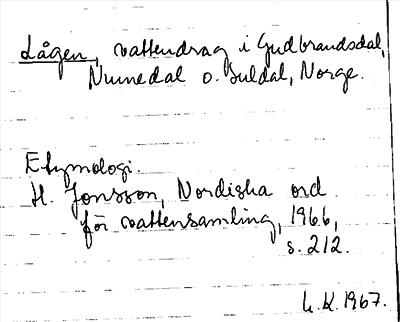 Lågen, vattendrag i Gudbrandsdal,
Numedal o. Suldal, Norge.
Etymologi.
H. Jonsson, Nordiska ord
för vattensamling, 1966,
s. 212.
L. K. 1967.